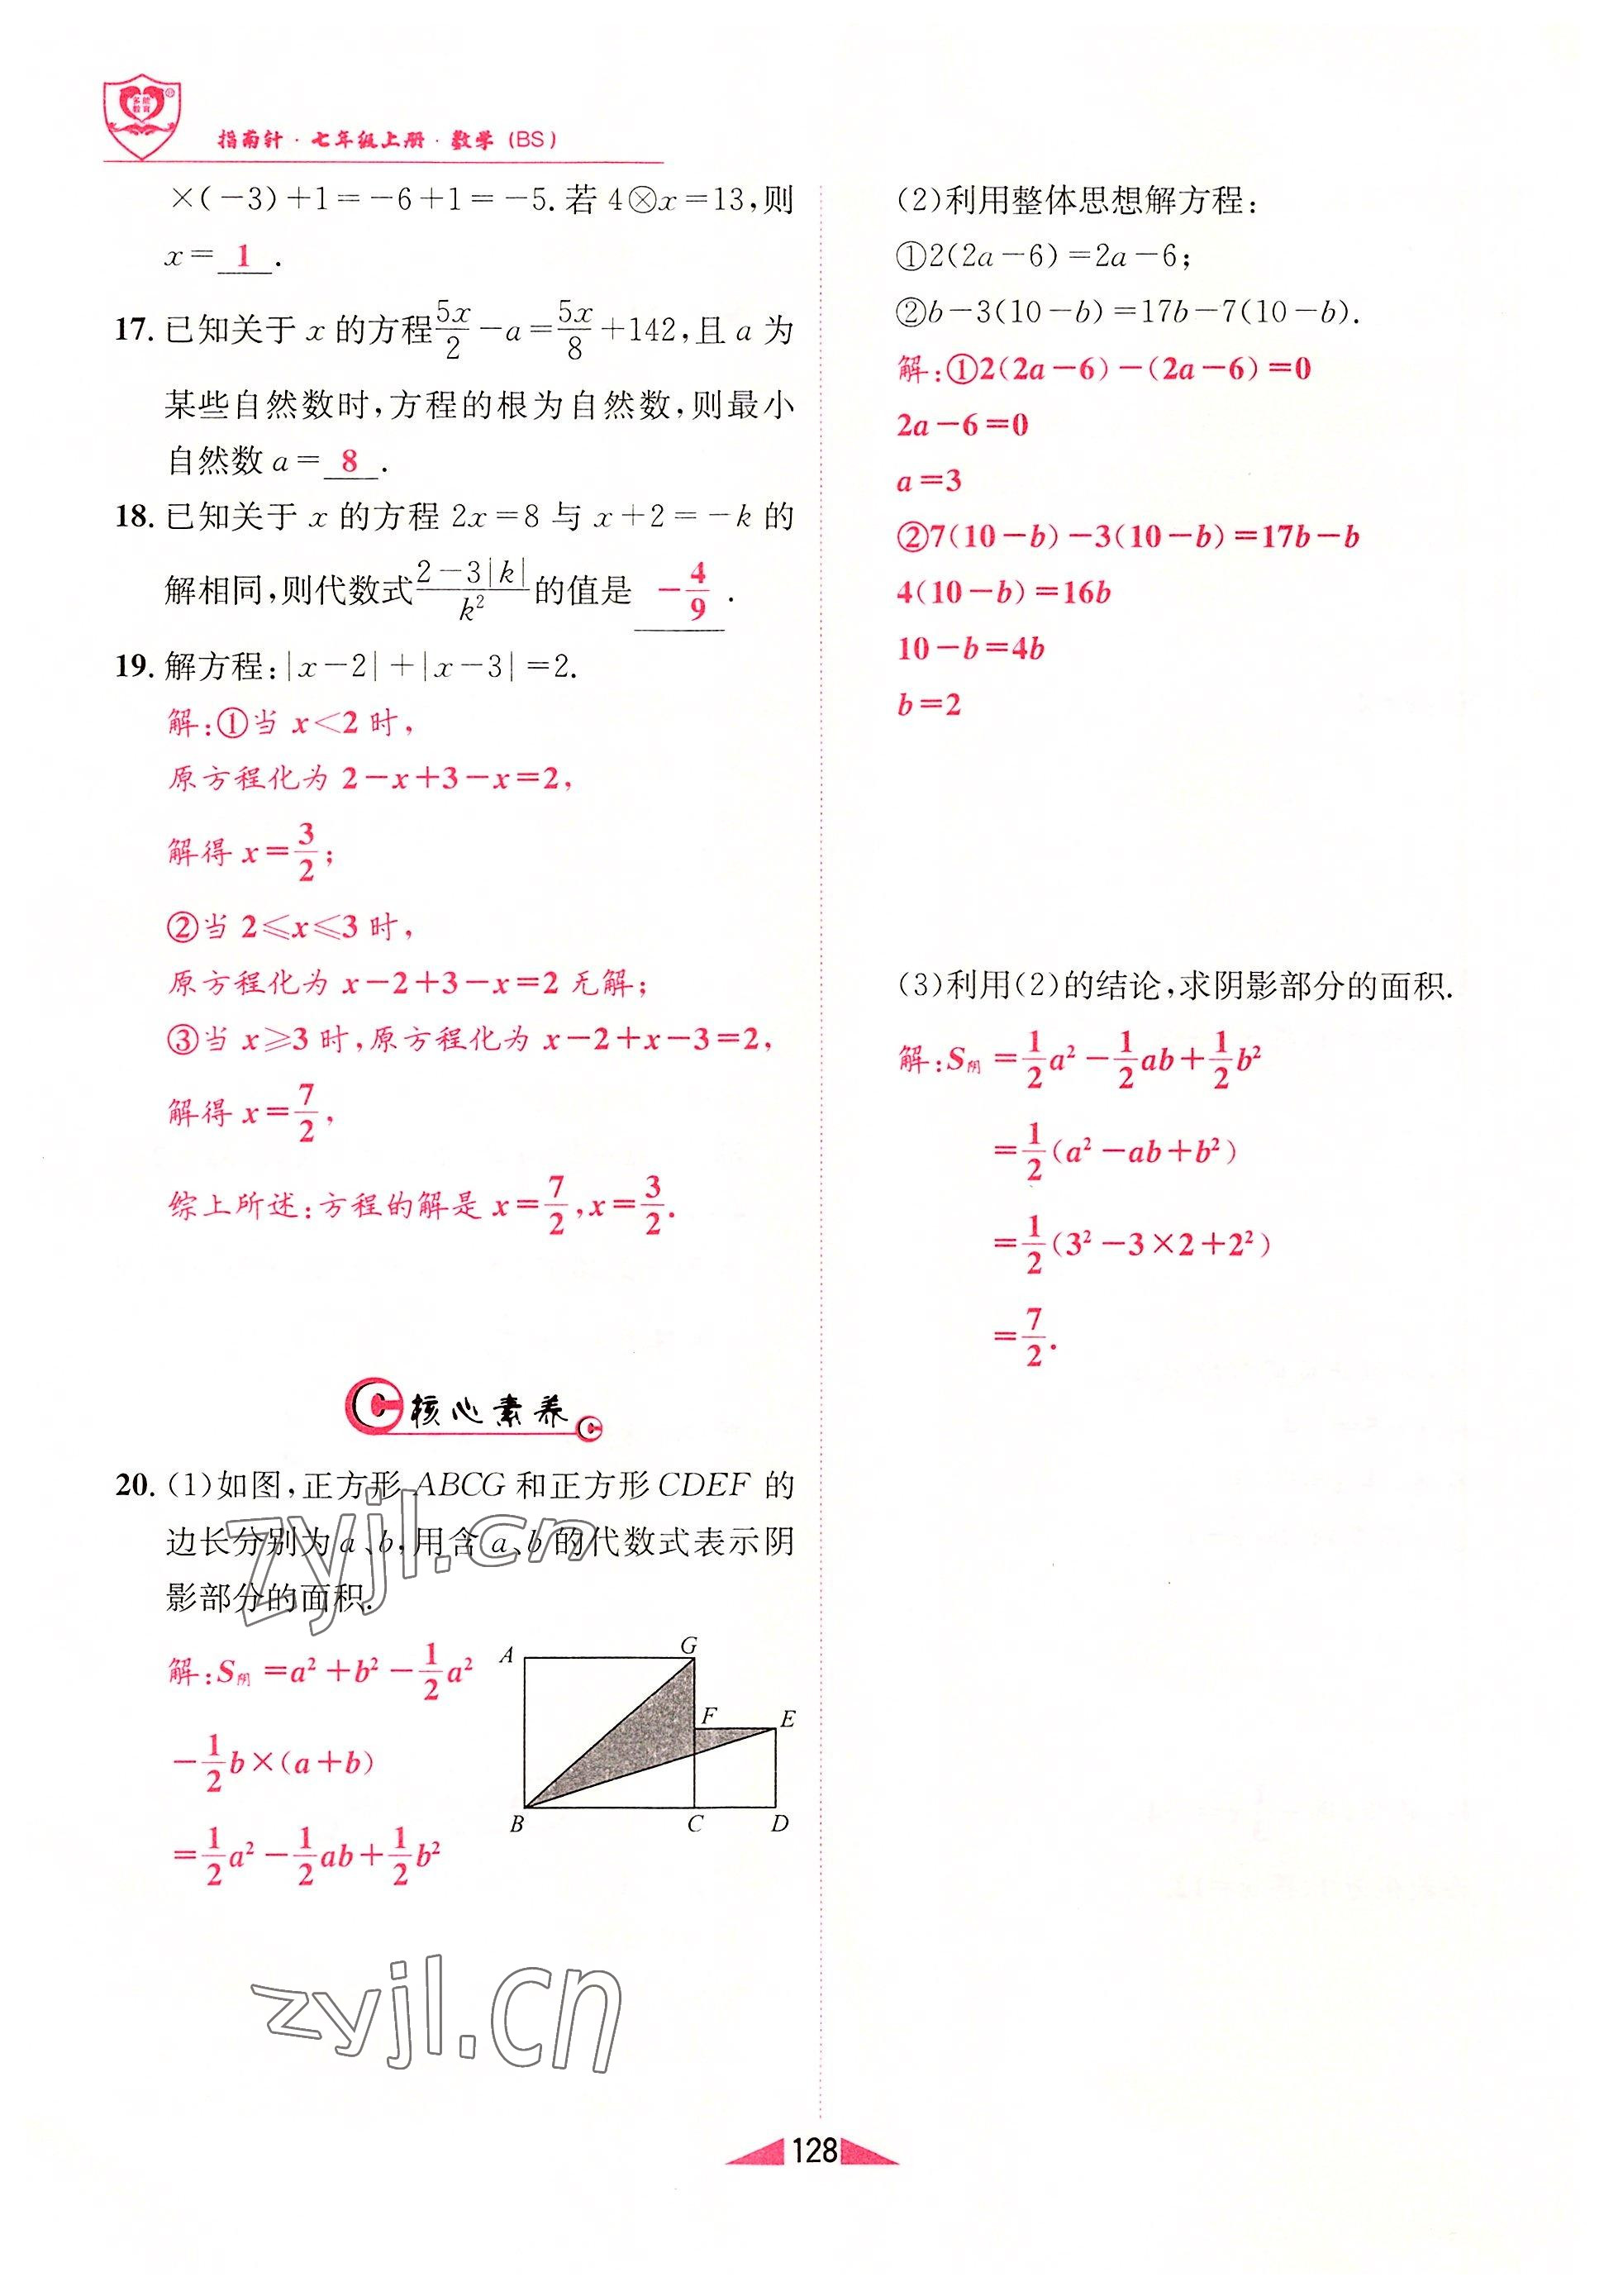 多能
教育
指南针·七年级上册·数学(BS)
×(−3)+1=−6+1=−5.若 4⊗x=13,则
x= 1 .
17. 已知关于 x 的方程5x/2−a=5x/8+142,且 a 为
某些自然数时,方程的根为自然数,则最小
自然数 a= 8 .
18. 已知关于 x 的方程 2x=8 与 x+2=−k 的
解相同,则代数式(2−3|k|)/k²的值是 −4/9 .
19. 解方程:|x−2|+|x−3|=2.
解:①当 x<2 时,
原方程化为 2−x+3−x=2,
解得 x=3/2;
②当 2≤x≤3 时,
原方程化为 x−2+3−x=2 无解;
③当 x≥3 时,原方程化为 x−2+x−3=2,
解得 x=7/2,
综上所述:方程的解是 x=7/2,x=3/2.
核心素养
20. (1)如图,正方形 ABCG 和正方形 CDEF 的
边长分别为 a、b,用含 a、b 的代数式表示阴
影部分的面积.
解:S阴=a²+b²−1/2a²
−1/2b×(a+b)
=1/2a²−1/2ab+1/2b²
A G
F E
B C D
zyjl.cn
zyjl.cn
(2)利用整体思想解方程:
①2(2a−6)=2a−6;
②b−3(10−b)=17b−7(10−b).
解:①2(2a−6)−(2a−6)=0
2a−6=0
a=3
②7(10−b)−3(10−b)=17b−b
4(10−b)=16b
10−b=4b
b=2
(3)利用(2)的结论,求阴影部分的面积.
解:S阴=1/2a²−1/2ab+1/2b²
=1/2(a²−ab+b²)
=1/2(3²−3×2+2²)
=7/2.
128